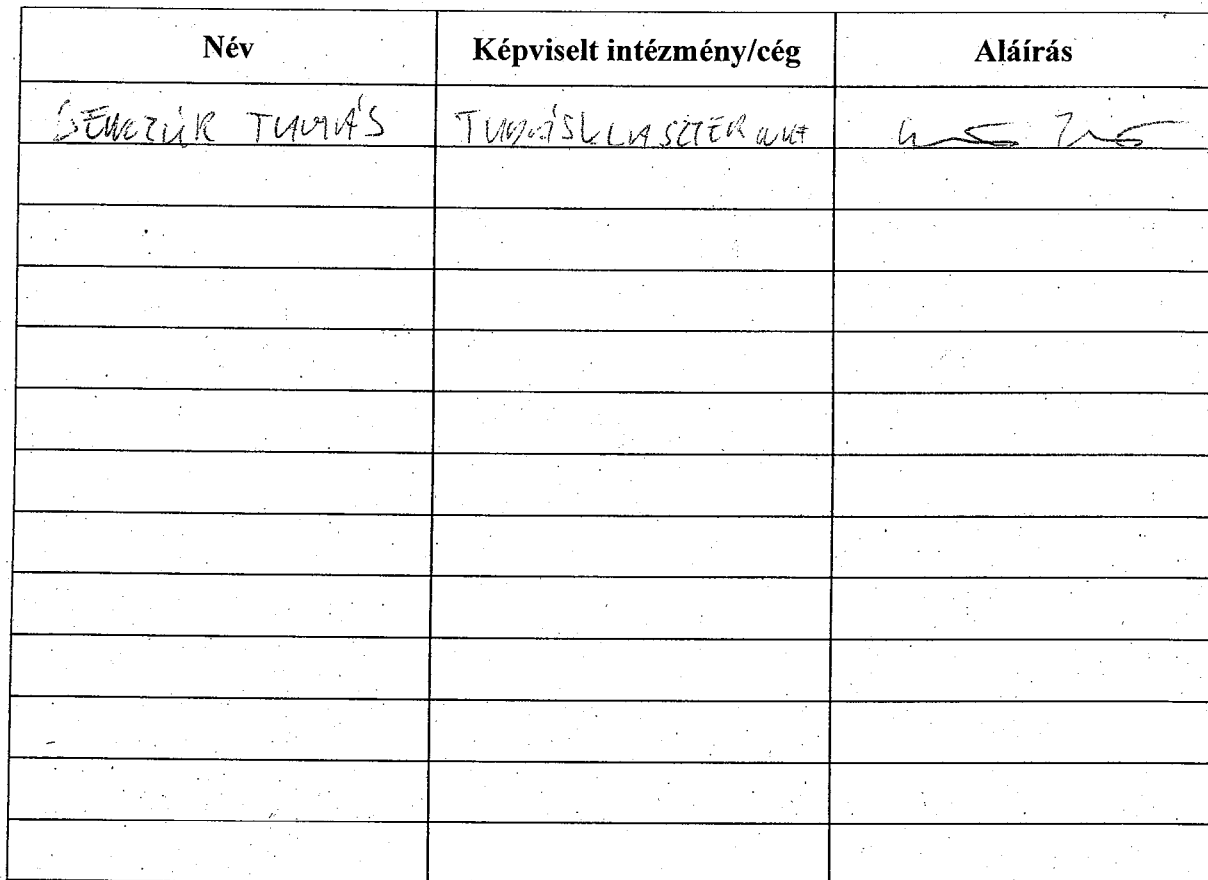 Név Képviselt intézmény/cég Aláírás
BENCZÚR TAMÁS TUDÁSKLASZTER